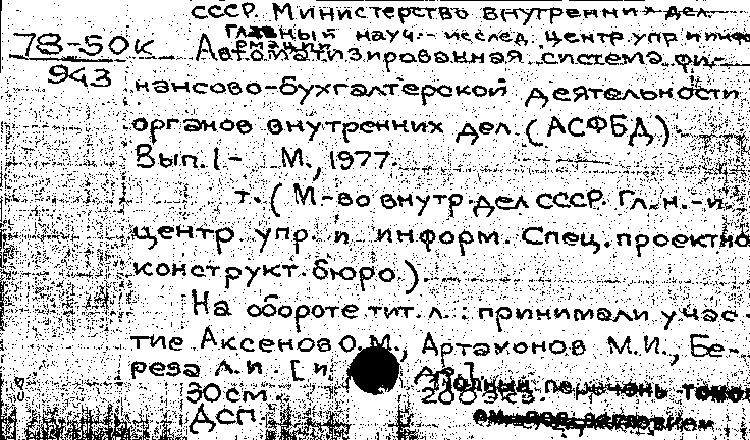 СССР. Министерство внутренних дел.
Главный науч.-исслед. центр упр. и инфо
рмации.
78-50к Автоматизированная система фи-
943
нансово-бухгалтерской деятельности
органов внутренних дел. (АСФБД).
Вып. 1- М., 1977.
т. (М-во внутр. дел СССР. Гл. н.-и.
центр. упр. и информ. Спец. проектно
конструкт. бюро).
На обороте тит. л.: принимали учас-
тие Аксенов О.М., Артамонов М.И., Бе-
реза Л.И. [и др.]
Полный перечень томов
30 см. 200 экз.
см. под заглавием
ДСП.